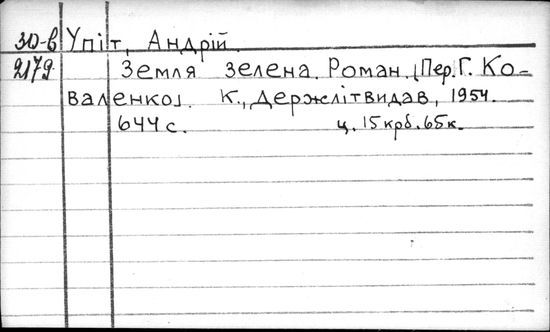 30-в Упіт, Андрій.
2179 Земля зелена. Роман. [Пер. Г. Ко-
валенко]. К., Держлітвидав, 1954.
644 с. ц. 15 крб. 65 к.